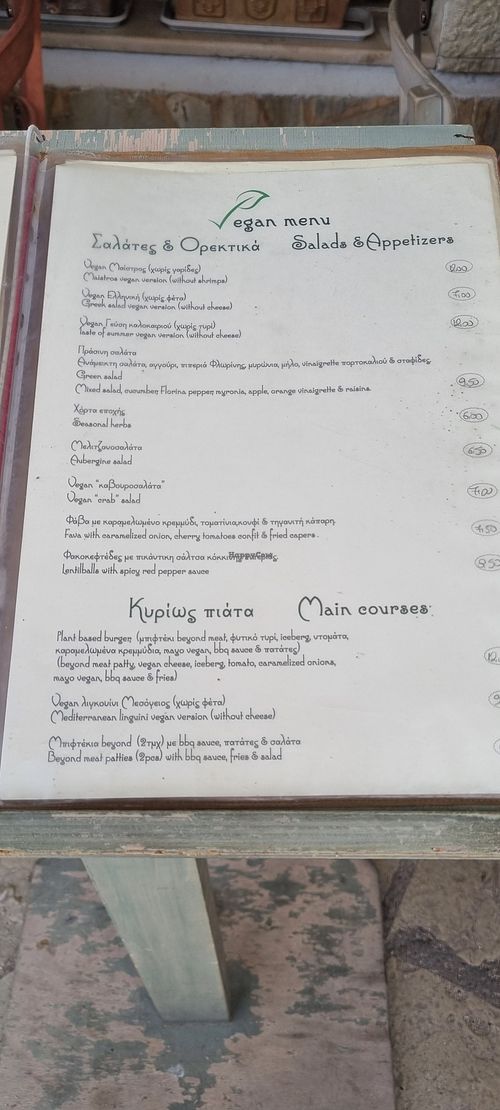 Vegan menu
Σαλάτες & Ορεκτικά Salads & Appetizers
Vegan Μαϊστρος (χωρίς γαρίδες)
Maistros vegan version (without shrimps) 12.00
Vegan Ελληνική (χωρίς φέτα) 7.00
Greek salad vegan version (without cheese)
Vegan Γεύση καλοκαιριού (χωρίς τυρί) 12.00
Taste of summer vegan version (without cheese)
Πράσινη σαλάτα
Ανάμεικτη σαλάτα, αγγούρι, πιπεριά Φλωρίνης, μυρώνια, μήλο, vinaigrette πορτοκαλιού & σταφίδες.
Green salad
Mixed salad, cucumber, Florina pepper, myronia, apple, orange vinaigrette & raisins. 9.50
Χόρτα εποχής 6.00
Seasonal herbs
Μελιτζανοσαλάτα 6.50
Aubergine salad
Vegan "καβουροσαλάτα" 7.00
Vegan "crab" salad
Φάβα με καραμελωμένο κρεμμύδι, τοματίνια κονφί & τηγανιτή κάπαρη. 7.50
Fava with caramelized onion, cherry tomatoes confit & fried capers.
Φακοκεφτέδες με πικάντικη σάλτσα κόκκινης πιπεριάς. 9.50
HappyCow
Lentilballs with spicy red pepper sauce
Κυρίως πιάτα Main courses
Plant based burger (μπιφτέκι beyond meat, φυτικό τυρί, iceberg, ντομάτα,
καραμελωμένα κρεμμύδια, mayo vegan, bbq sauce & πατάτες)
(beyond meat patty, vegan cheese, iceberg, tomato, caramelized onions,
mayo vegan, bbq sauce & fries)
Vegan λιγκουίνι Μεσόγειος (χωρίς φέτα)
Mediterranean linguini vegan version (without cheese)
Μπιφτέκια beyond (2τμχ) με bbq sauce, πατάτες & σαλάτα
Beyond meat patties (2pcs) with bbq sauce, fries & salad